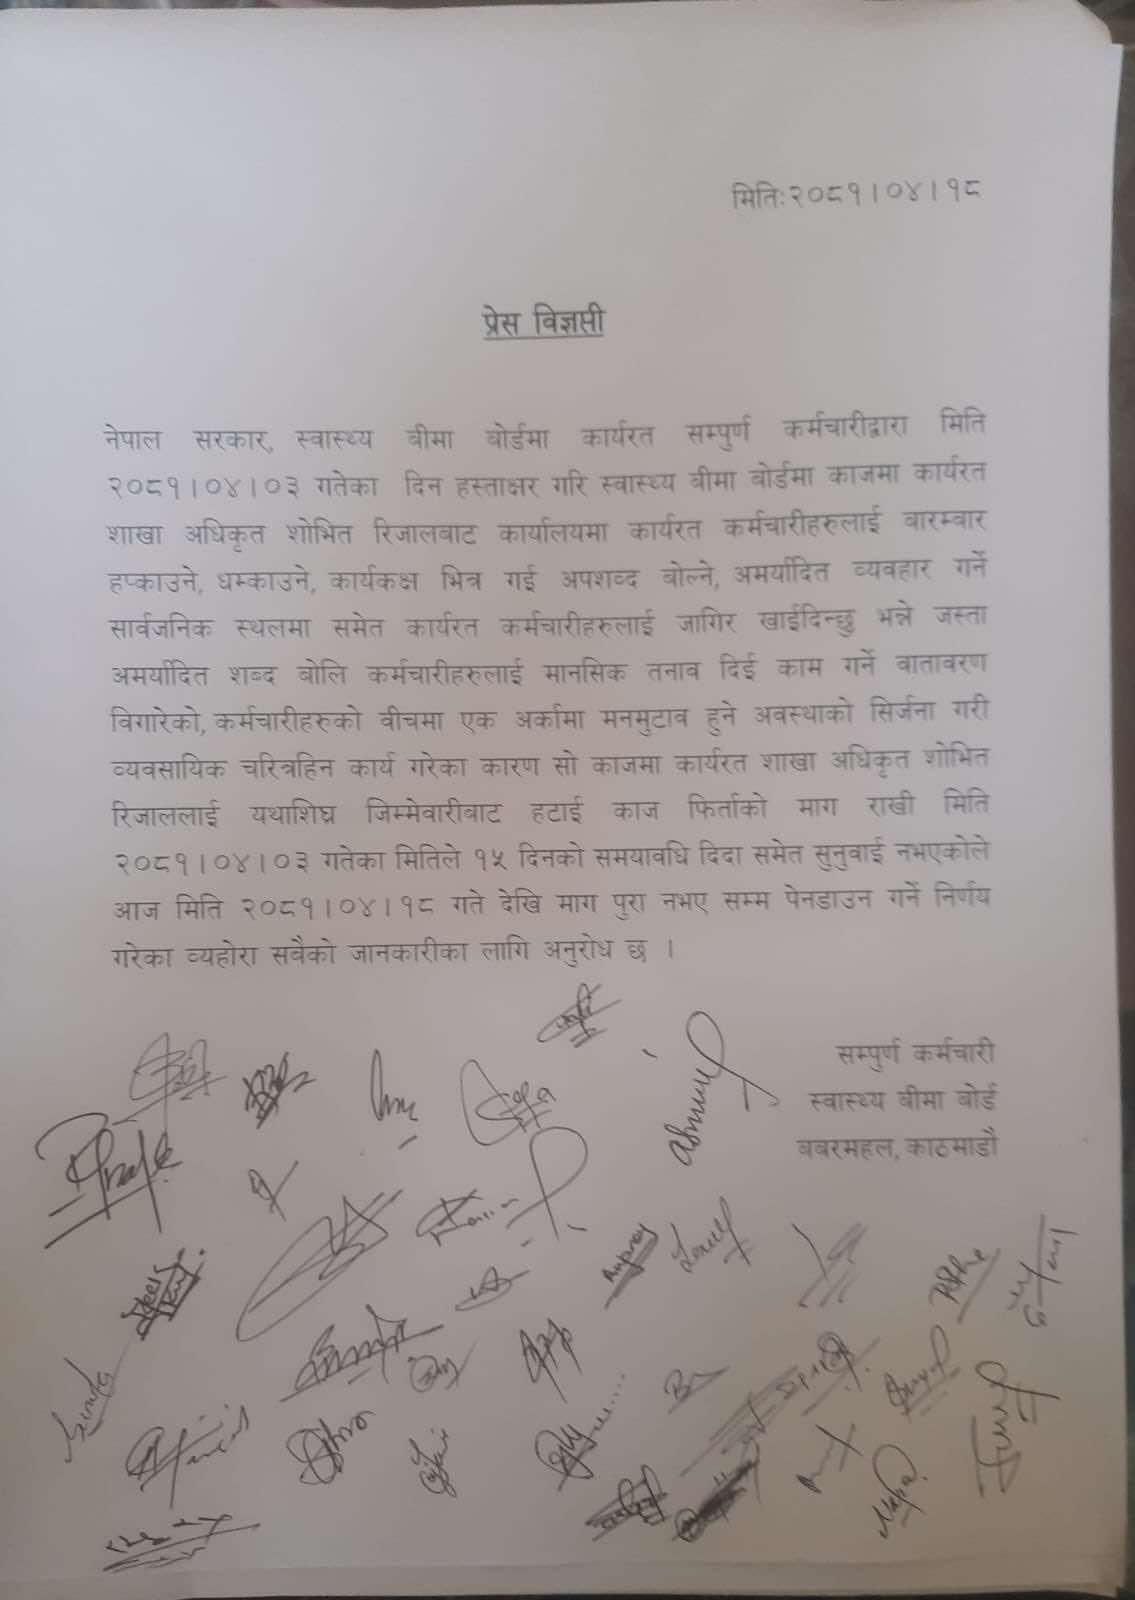 मिति:२०८१।०४।१८
प्रेस विज्ञप्ती
नेपाल सरकार, स्वास्थ्य बीमा बोर्डमा कार्यरत सम्पुर्ण कर्मचारीद्वारा मिति
२०८१।०४।०३ गतेका दिन हस्ताक्षर गरि स्वास्थ्य बीमा बोर्डमा काजमा कार्यरत
शाखा अधिकृत शोभित रिजालबाट कार्यालयमा कार्यरत कर्मचारीहरुलाई बारम्बार
हप्काउने, धम्काउने, कार्यकक्ष भित्र गई अपशब्द बोल्ने, अमर्यादित व्यवहार गर्ने
सार्वजनिक स्थलमा समेत कार्यरत कर्मचारीहरुलाई जागिर खाईदिन्छु भन्ने जस्ता
अमर्यादित शब्द बोलि कर्मचारीहरुलाई मानसिक तनाव दिई काम गर्ने वातावरण
विगारेको, कर्मचारीहरुको वीचमा एक अर्कामा मनमुटाव हुने अवस्थाको सिर्जना गरी
व्यवसायिक चरित्रहिन कार्य गरेका कारण सो काजमा कार्यरत शाखा अधिकृत शोभित
रिजाललाई यथाशिघ्र जिम्मेवारीबाट हटाई काज फिर्ताको माग राखी मिति
२०८१।०४।०३ गतेका मितिले १५ दिनको समयावधि दिदा समेत सुनुवाई नभएकोले
आज मिति २०८१।०४।१८ गते देखि माग पुरा नभए सम्म पेनडाउन गर्ने निर्णय
गरेका व्यहोरा सबैको जानकारीका लागि अनुरोध छ ।
सम्पुर्ण कर्मचारी
स्वास्थ्य बीमा बोर्ड
बबरमहल, काठमाडौ